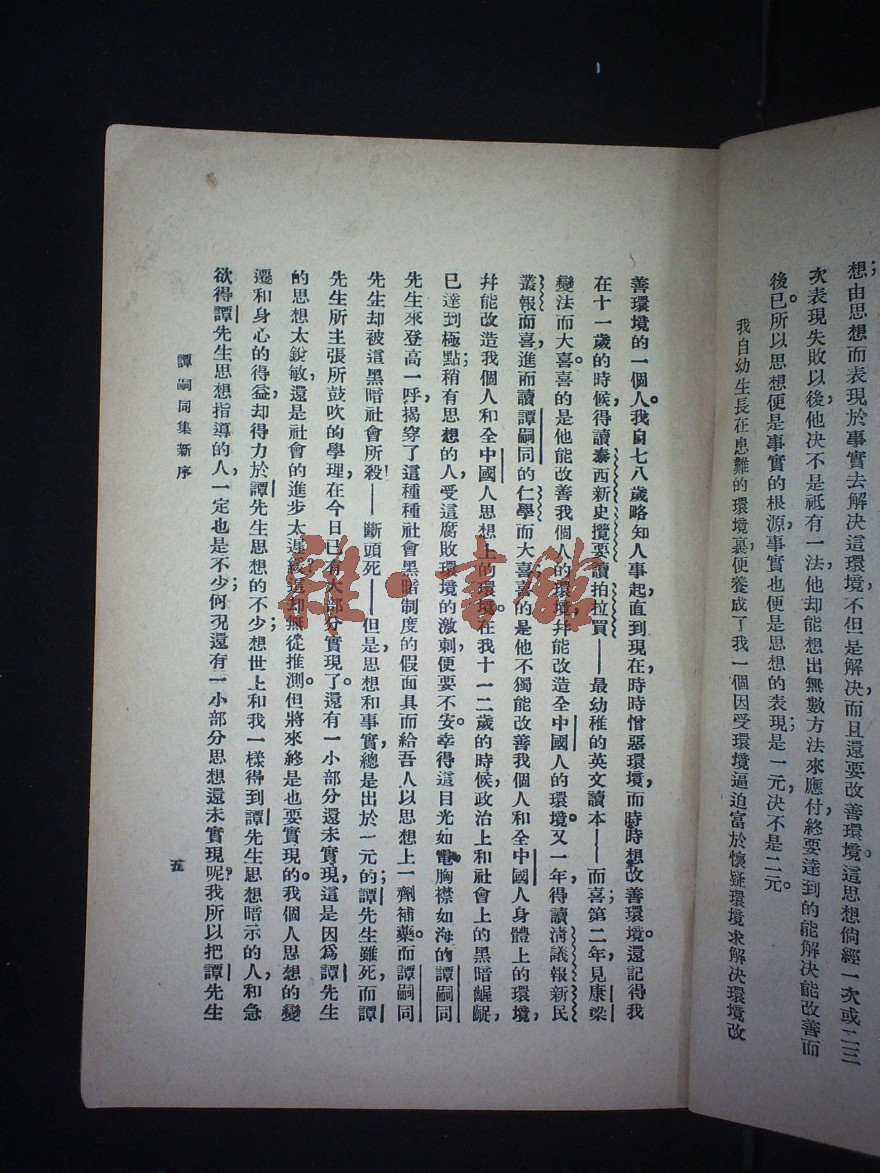 想由思想而表現於事實去解决這環境，不但是解决而且還要改善環境。這思想倘經一次或二三
次表現失敗以後，他决不是祗有一法，他却能想出無數方法來應付，終要達到的能解决能改善而
後已。所以思想便是事實的根源，事實也便是思想的表現；是一元，决不是二元。
我自幼生長在患難的環境裏，便養成了我一個因受環境逼迫富於懷疑環境求解决環境改
善環境的一個人。我自七八歲略知人事起，直到現在，時時憎惡環境，而時時想改善環境。還記得我
在十一歲的時候，得讀泰西新史攬要讀拍拉買——最幼稚的英文讀本——而喜；第二年，見康梁
變法而大喜。喜的是他能改善我個人的環境，幷能改造全中國人的環境。又一年，得讀淸議報新民
叢報而喜，進而讀譚嗣同的仁學而大喜；喜的是他不獨能改善我個人和全中國人身體上的環境，
幷能改造我個人和全中國人思想上的環境。在我十一二歲的時候，政治上和社會上的黑暗齷齪，
已達到極點；稍有思想的人，受這腐敗環境的激刺，便要不安。幸得這目光如電，胸襟如海的譚嗣同
先生來登高一呼，揭穿了這種種社會黑暗制度的假面具，而給吾人以思想上一劑補藥。而譚嗣同
先生却被這黑暗社會所殺！——斷頭死——但是，思想和事實，總是出於一元的；譚先生雖死，而譚
先生所主張所鼓吹的學理，在今日已有大部分實現了。還有一小部分還未實現，這是因爲譚先生
的思想太銳敏，還是社會的進步太遲緩？這却無從推測。但將來終是也要實現的。我個人思想的變
遷和身心的得益，却得力於譚先生思想的不少；想世上和我一樣得到譚先生思想暗示的人，和急
欲得譚先生思想指導的人，一定也是不少；何况還有一小部分思想還未實現呢？我所以把譚先生
譚嗣同集新序
五
雜·書館